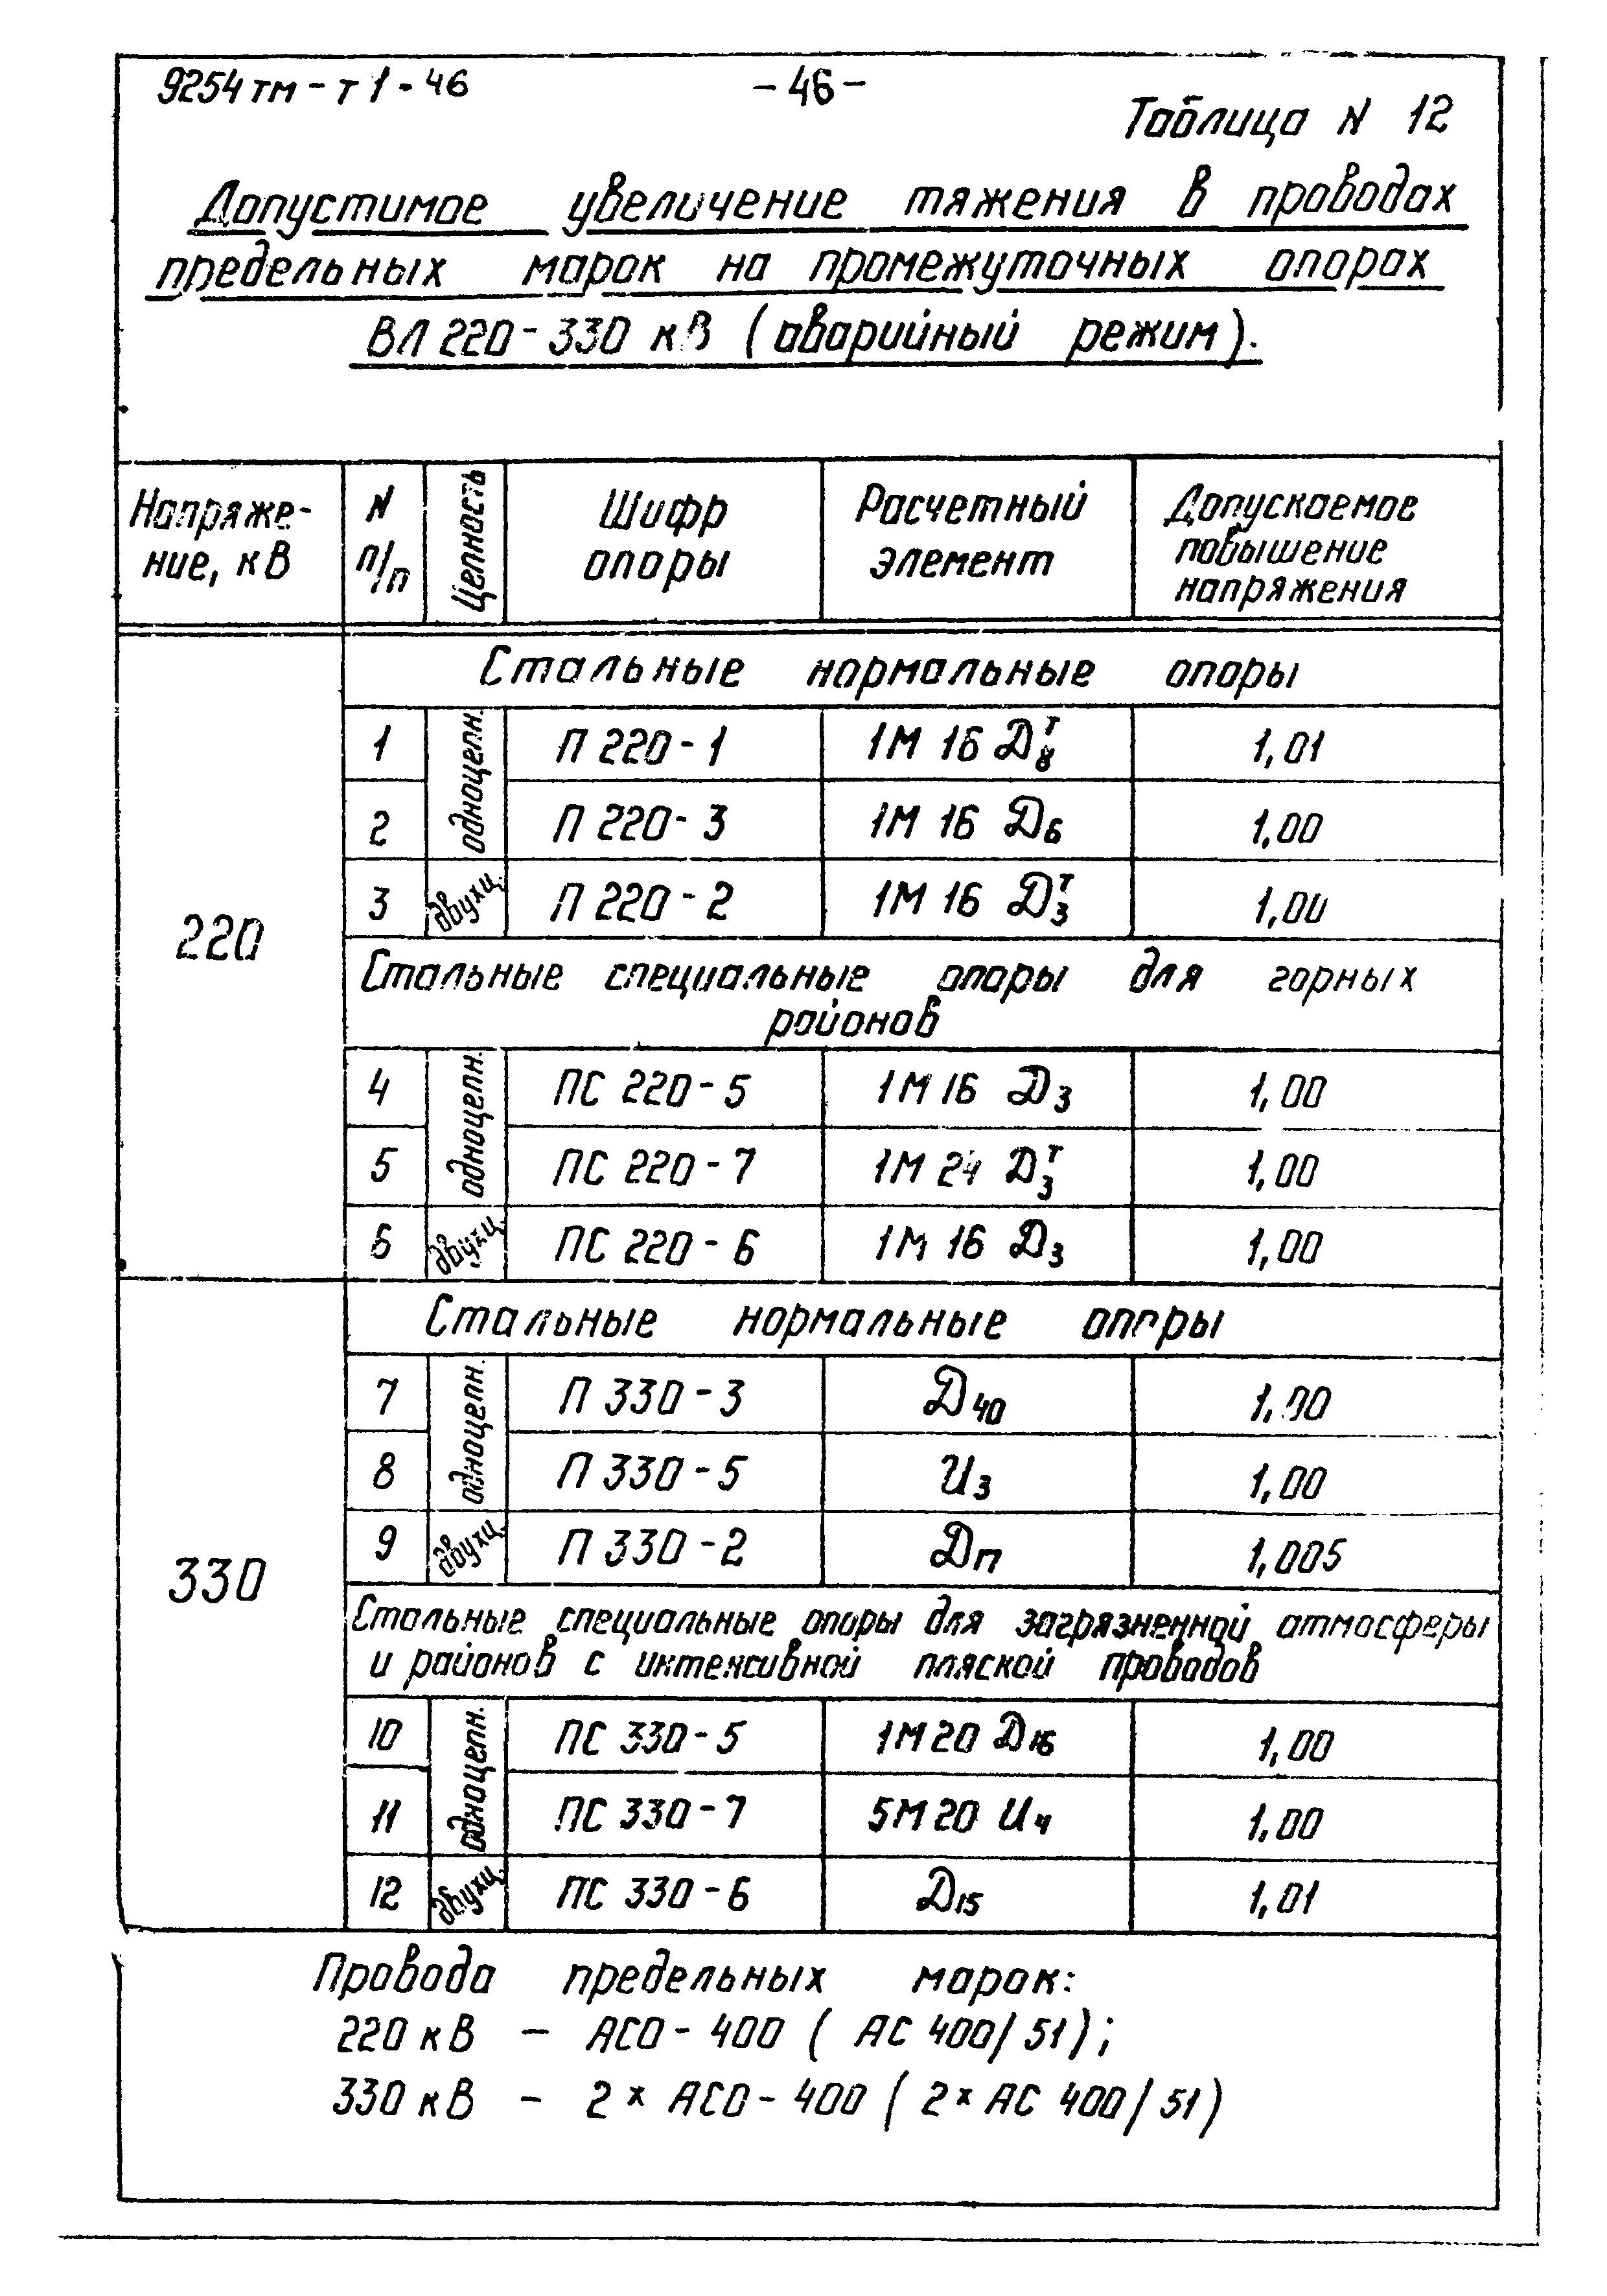 9254тм - т1 - 46
- 46 -
Таблица N 12
Допустимое увеличение тяжения в проводах
предельных марок на промежуточных опорах
ВЛ 220 - 330 кВ (аварийный режим).
Напряже-
ние, кВ
N
п/п
Цепность
Шифр
опоры
Расчетный
элемент
Допускаемое
повышение
напряжения
220
Стальные нормальные опоры
одноцепн.
1 П 220 - 1 1М 16 Д₈ᵀ 1,01
2 П 220 - 3 1М 16 Д₆ 1,00
3 двухц. П 220 - 2 1М 16 Д₃ᵀ 1,00
Стальные специальные опоры для горных
районов
одноцепн.
4 ПС 220 - 5 1М 16 Д₃ 1,00
5 ПС 220 - 7 1М 24 Д₃ᵀ 1,00
6 двухц. ПС 220 - 6 1М 16 Д₃ 1,00
330
Стальные нормальные опоры
одноцепн.
7 П 330 - 3 Д₄₀ 1,00
8 П 330 - 5 И₃ 1,00
9 двухц. П 330 - 2 Дп 1,005
Стальные специальные опоры для загрязненной атмосферы
и районов с интенсивной пляской проводов
одноцепн.
10 ПС 330 - 5 1М 20 Д₁₆ 1,00
11 ПС 330 - 7 5М 20 И₄ 1,00
12 двухц. ПС 330 - 6 Д₁₅ 1,01
Провода предельных марок:
220 кВ - АСО - 400 ( АС 400/51 );
330 кВ - 2 × АСО - 400 ( 2 × АС 400/51 )